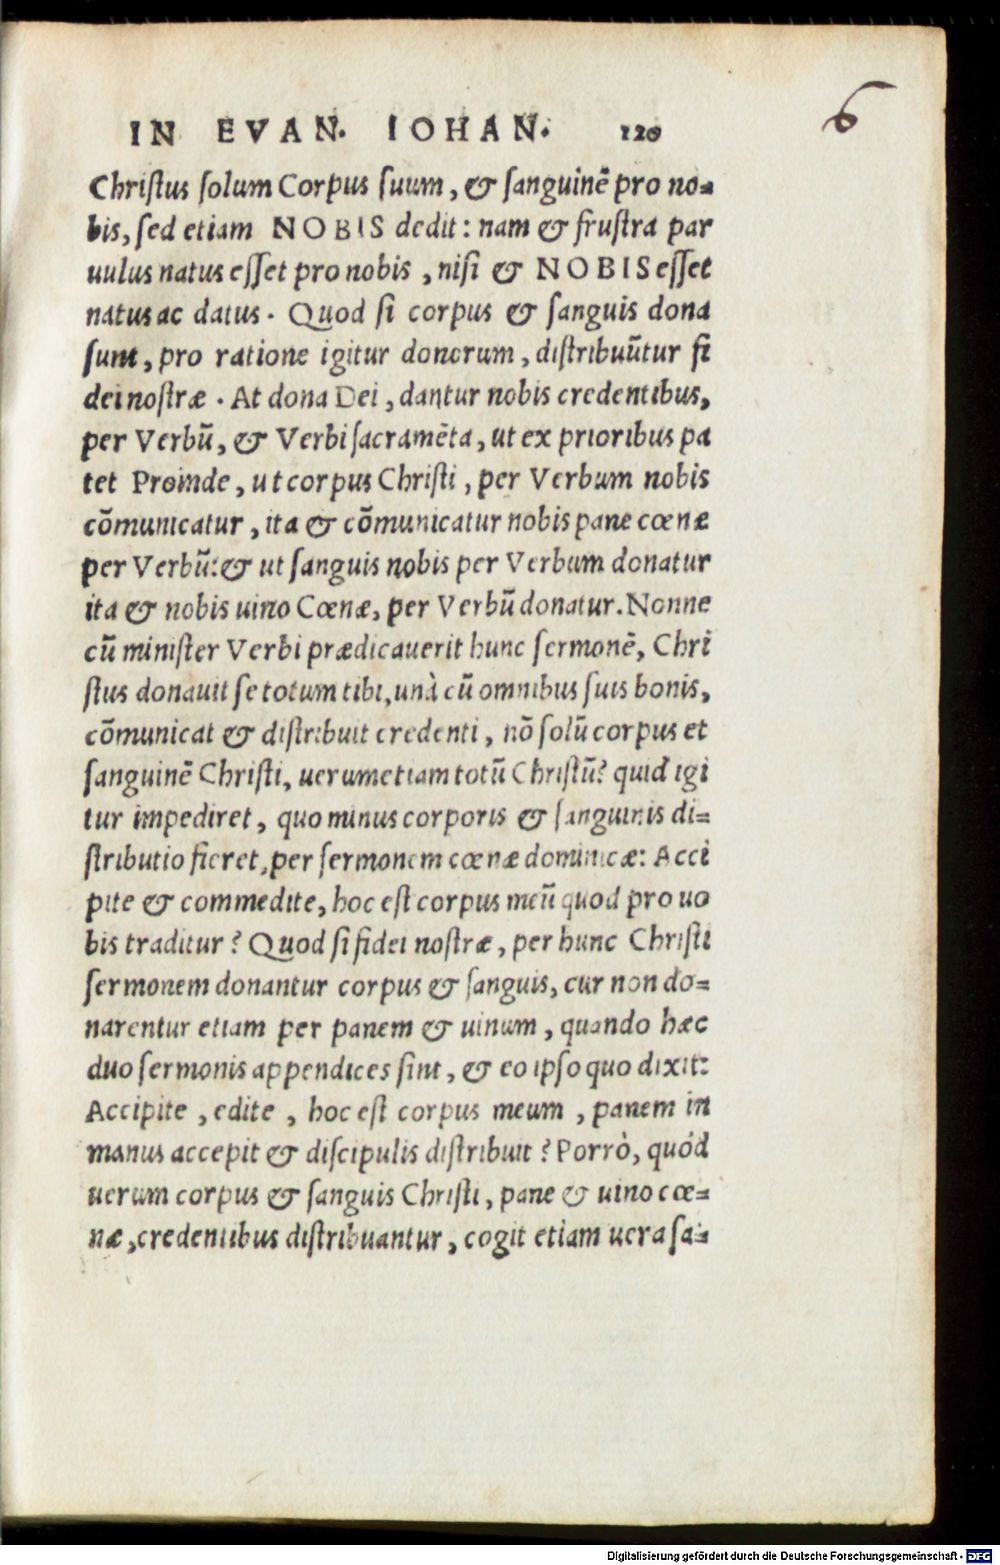 6
IN EVAN. IOHAN. 120
Christus solum Corpus suum, & sanguinē pro no=
bis, sed etiam NOBIS dedit: nam & frustra par
uulus natus esset pro nobis, nisi & NOBIS esset
natus ac datus. Quod si corpus & sanguis dona
sunt, pro ratione igitur donorum, distribuūtur fi
dei nostræ. At dona Dei, dantur nobis credentibus,
per Verbū, & Verbi sacramēta, ut ex prioribus pa
tet Proinde, ut corpus Christi, per Verbum nobis
cōmunicatur, ita & cōmunicatur nobis pane cœnæ
per Verbū: & ut sanguis nobis per Verbum donatur
ita & nobis uino Cœnæ, per Verbū donatur. Nonne
cū minister Verbi prædicauerit hunc sermonē, Chri
stus donauit se totum tibi, unà cū omnibus suis bonis,
cōmunicat & distribuit credenti, nō solū corpus et
sanguinē Christi, uerumetiam totū Christū? quid igi
tur impediret, quo minus corporis & sanguinis di=
stributio fieret, per sermonem cœnæ dominicæ: Acci
pite & commedite, hoc est corpus meū quod pro uo
bis traditur? Quod si fidei nostræ, per hunc Christi
sermonem donantur corpus & sanguis, cur non do=
narentur etiam per panem & uinum, quando hæc
duo sermonis appendices sint, & eo ipso quo dixit:
Accipite, edite, hoc est corpus meum, panem in
manus accepit & discipulis distribuit? Porrò, quòd
uerum corpus & sanguis Christi, pane & uino cœ=
næ, credentibus distribuantur, cogit etiam uera sa=
Digitalisierung gefördert durch die Deutsche Forschungsgemeinschaft - DFG